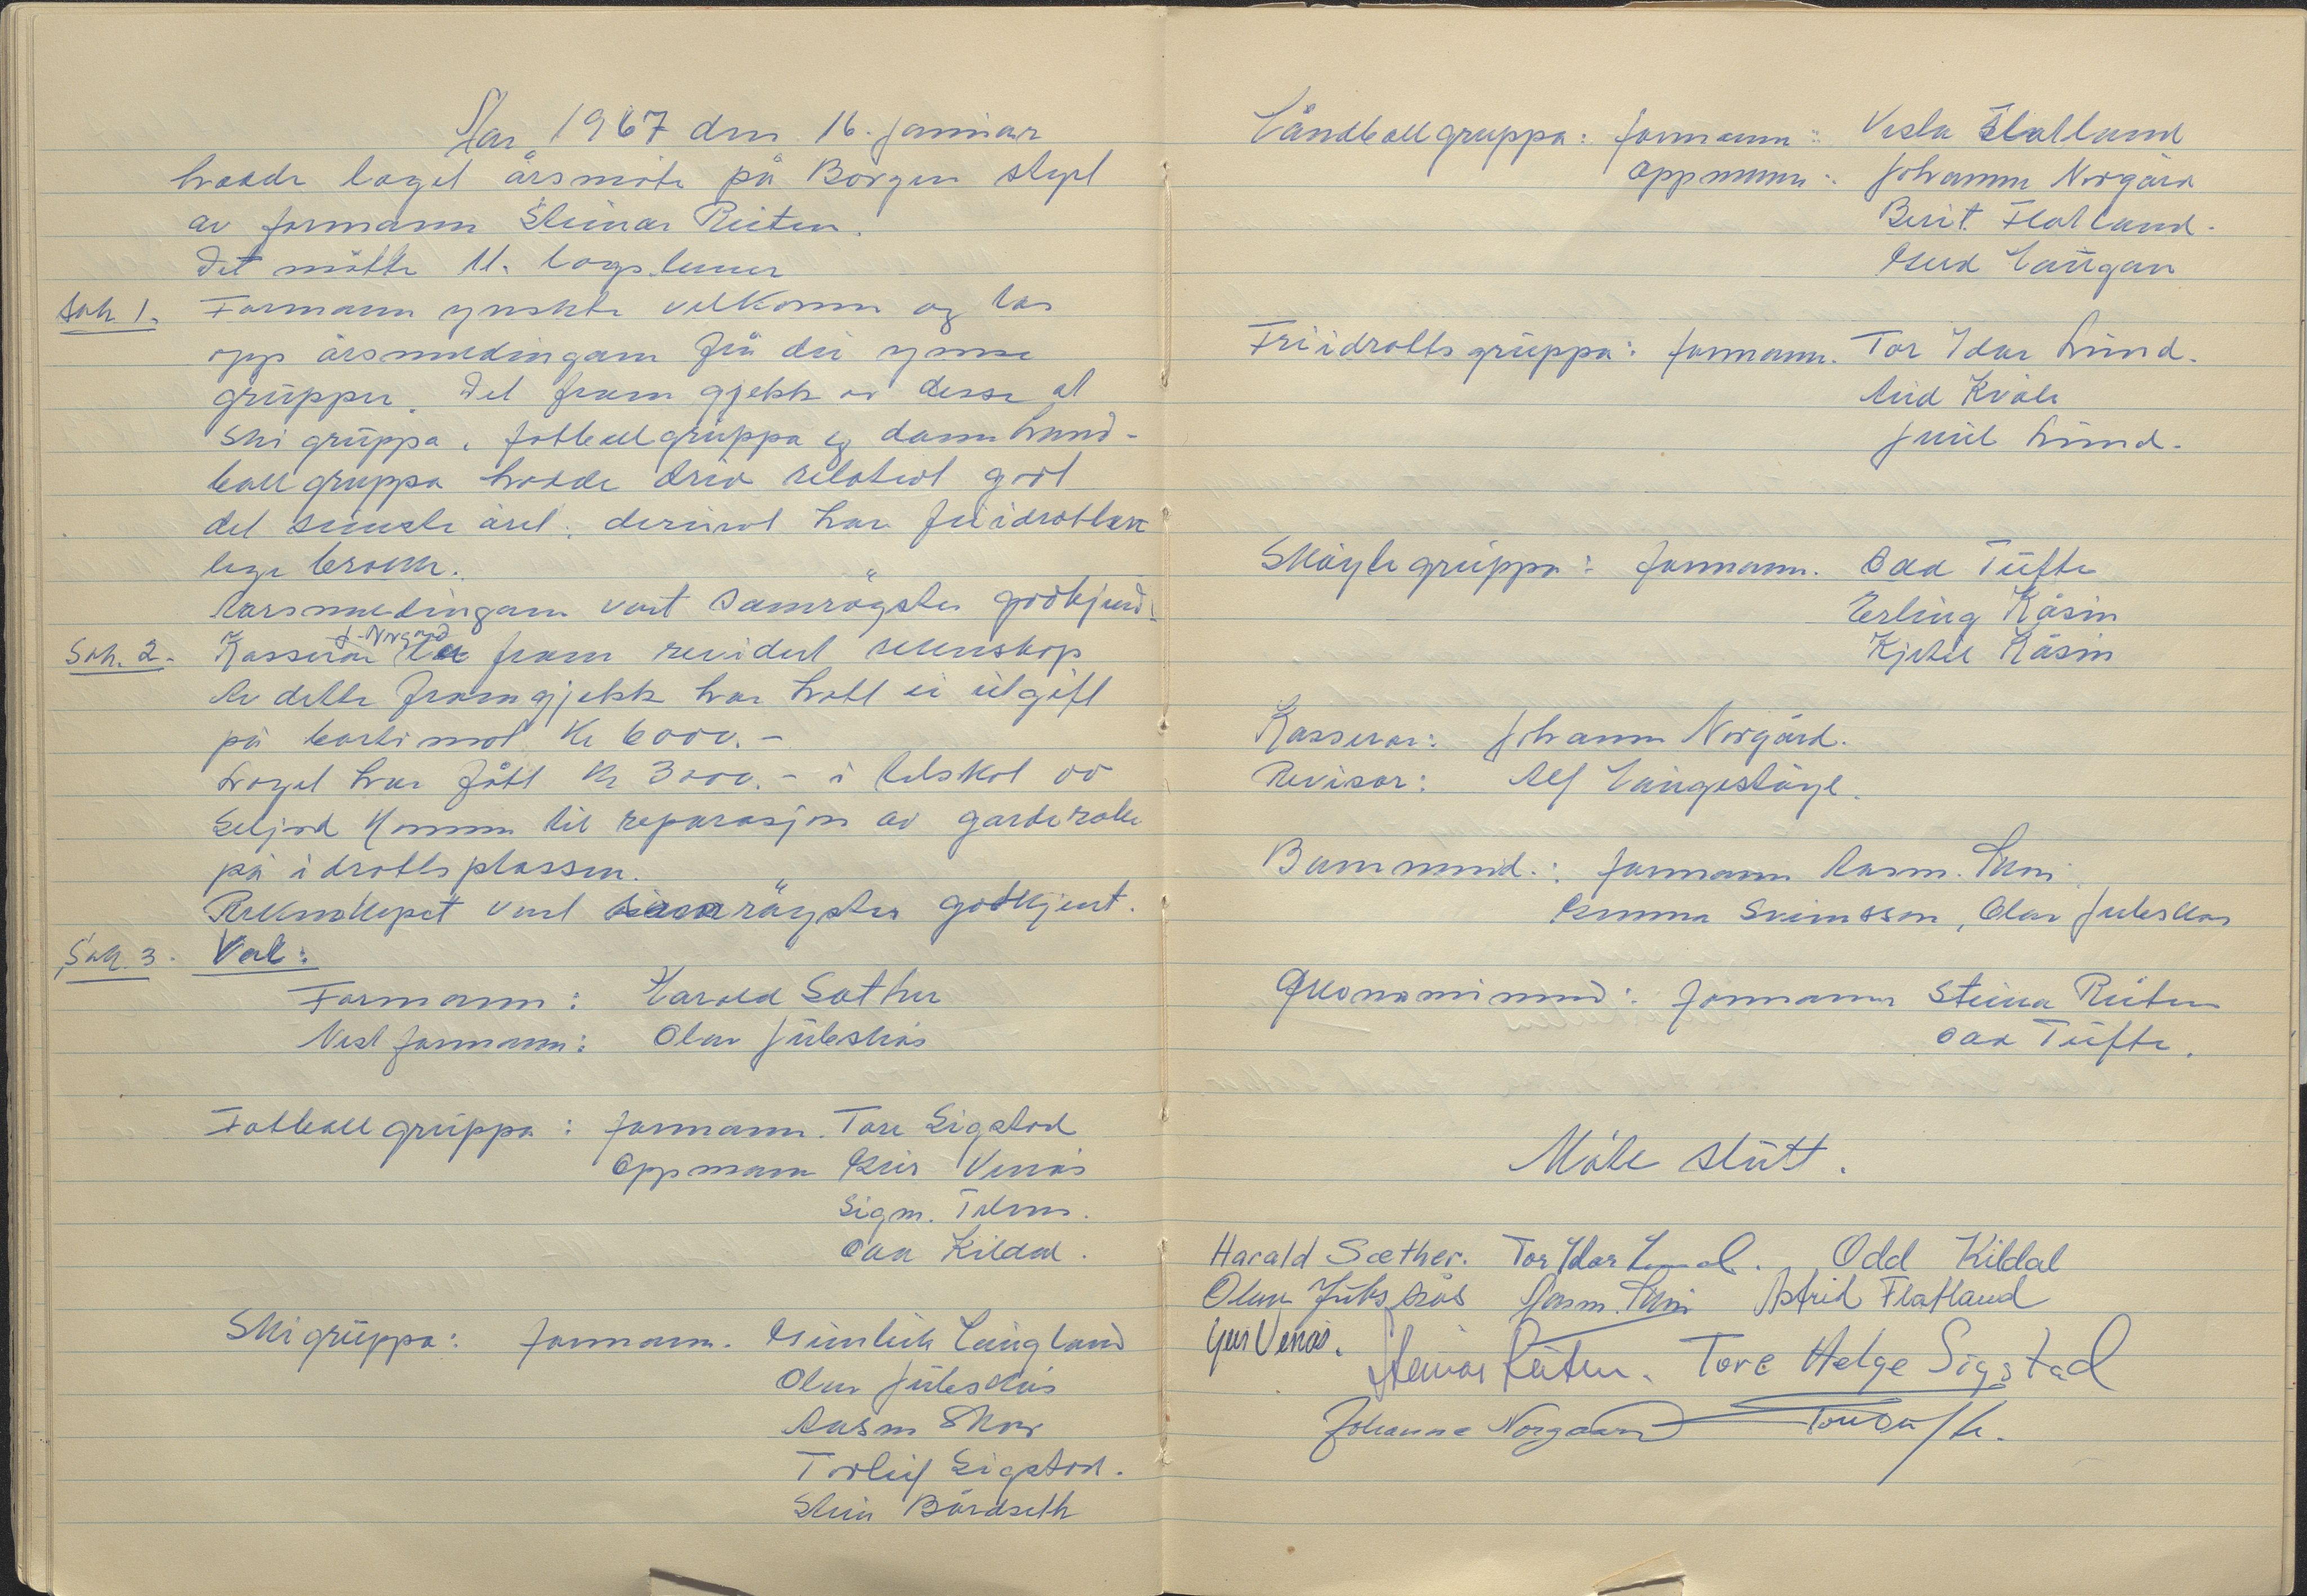 Aar 1967 den 16. januar
hadde laget årsmøte på Borgen styrt
av formann Steinar Reiten.
Det møtte 11. lagslemer
Sak 1. Formann ynskte velkomen og las
opp årsmeldingane frå dei ymse
grupper. Det fram gjekk av desse at
Ski gruppa, fotballgruppa og dame hand-
ball gruppa hadde drive relativt godt
det seinste året. derimot har friidrotten
lege brakk.
Aarsmeldingane vart samrøystes godkjend.
Sak. 2. Kasserar J. Norgård la fram revidert rekenskap
Av dette framgjekk har hatt ei utgift
på bortimot kr 6000.-
Laget har fått kr 3000.- i tilskot av
Seljord Komm til reparasjon av garderobe
på idrottsplassen.
Rekneskapet vart samrøystes godkjent.
Sak. 3. Val:
Formann: Harald Sæther
Nest formann: Olav Juleskås
Fotball gruppa: formann. Tore Sigstad
Oppmann Geir Venås
Sigm.
Odd Kildal.
Ski gruppa: formann. Gunleik Langland
Olav Juleskås
Aasm Skor
Torleif Sigstad.
Stein Bårdseth
Håndballgruppa: formann: Vesla Flatland
Oppmann: Johanne Norgård
Berit Flatland.
Gerd Haugan
Friidrotts gruppa: formann. Tor Idar Lund.
Aud Kvåle
Juul Lund.
Skøyte gruppa: formann. Odd Tufte
Erling Kåsin
Kjetil Kåsin
Kasserar: Johanne Norgård.
Revisor: Alf Haugestøyl.
Bane nemd.: formann Aasm.
Gunnar Sveinsson, Olav Juleskås
Økonominemd: formann Steinar Reiten
Odd Tufte.
Møte slutt.
Harald Sæther. Tor Idar Lund. Odd Kildal
Olav Juleskås Aasm. Astrid Flatland
Geir Venås.
Steinar Reiten. Tore Helge Sigstad
Johanne Norgaard